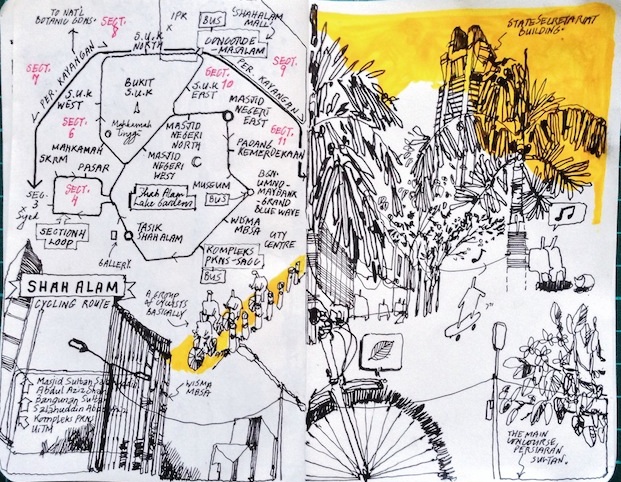 TO NAT'L
BOTANIC GDNS.
SECT.
8
IPR
BUS
SHAHALAM
MALL
S.U.K
NORTH
CONCORDE-
MASALAM
SECT.
7
PER. KAYANGAN
SECT.
9
PER. KAYANGAN
S.U.K
WEST
BUKIT
S.U.K
SECT.
10
S.U.K
EAST
MASJID
NEGERI
EAST
SECT.
6
Mahkamah
Tinggi
SECT.
11
MASJID
NEGERI
NORTH
PADANG
KEMERDEKAAN
MAHKAMAH
SKRM
MASJID
NEGERI
WEST
PASAR
MUSEUM
BUS
BGN.
UMNO-
MAYBANK
-GRAND
BLUE WAVE
SEC.
3
SECT.
4
Shah Alam
Lake Gardens
WISMA
MBSA
SECTION 4
LOOP
TASIK
SHAH ALAM
UTY
CENTRE
GALLERY
KOMPLEKS
PKNS-SACC
BUS
SHAH ALAM
CYCLING ROUTE
A GROUP
OF CYCLISTS
BASICALLY
WISMA
MBSA
Masjid Sultan
Abdul Aziz Shah
Bangunan Sultan
Salahuddin Abdul
Kompleks PKNS
UiTM
STATE SECRETARIAT
BUILDING.
THE MAIN
CONCOURSE,
PERSIARAN
SULTAN.